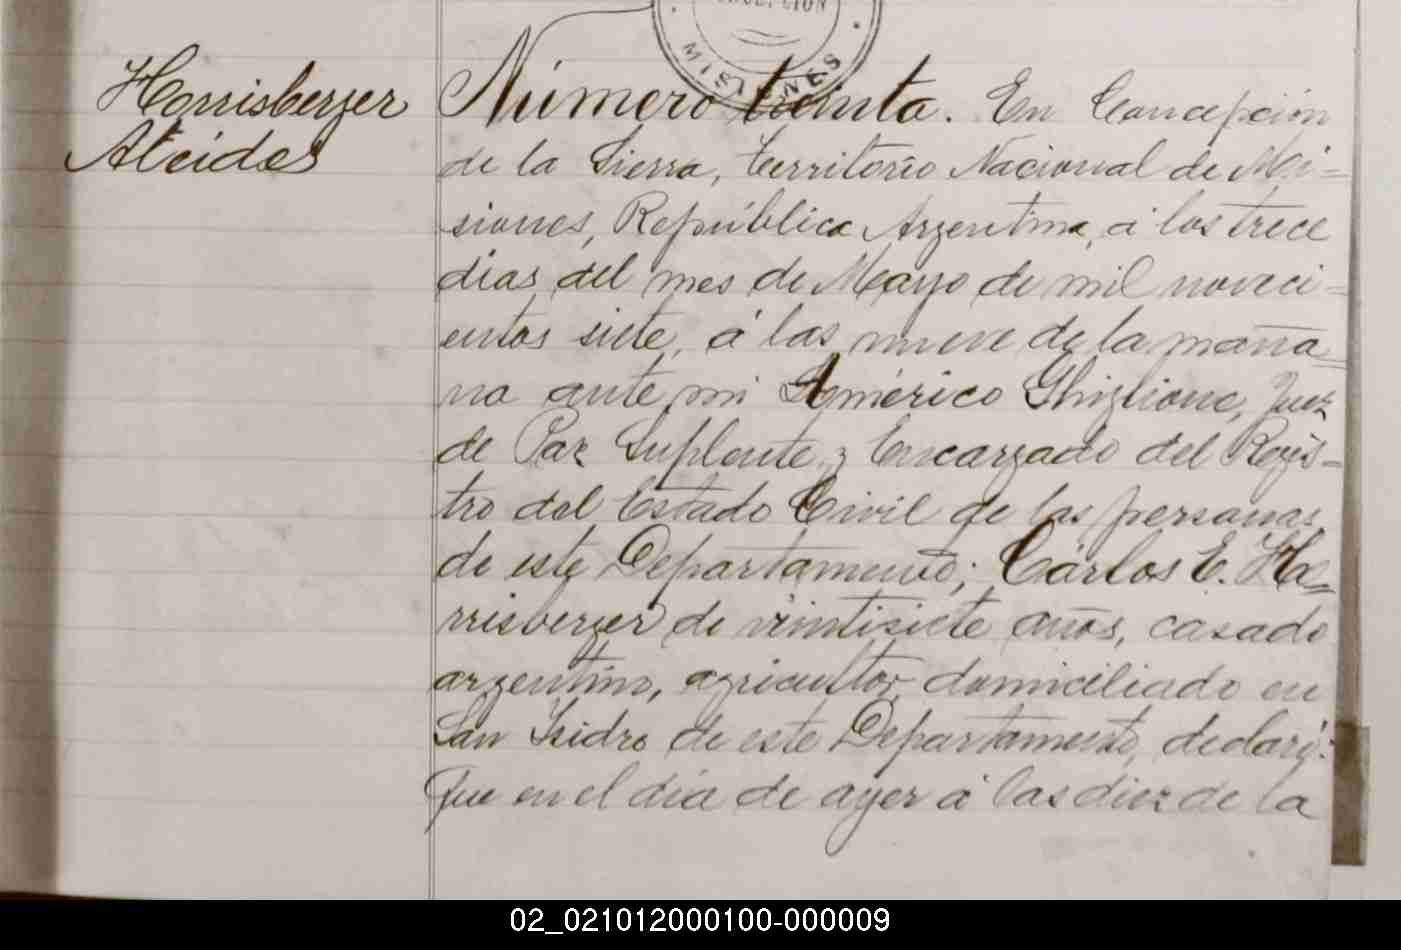 CONCEPCION
MISIONES
Harrisberger
Alcides
Número treinta. En Concepción
de la Sierra, Territorio Nacional de Mi=
siones, República Argentina, á los trece
dias del mes de Mayo de mil noveci=
entos siete, á las nueve de la maña=
na ante mi Américo Ghiglione, Juez
de Paz Suplente y Encargado del Regis=
tro del Estado Civil de las personas
de este Departamento; Cárlos E. Ha=
rrisberger de veintisiete años, casado
argentino, agricultor, domiciliado en
San Isidro de este Departamento, declaró:
Que en el día de ayer á las diez de la
02_021012000100-000009